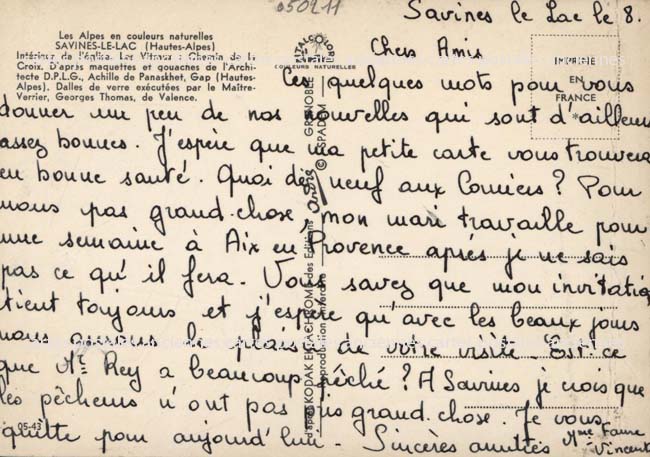 050211
Savines le Lac le 8.
Les Alpes en couleurs naturelles
SAVINES-LE-LAC (Hautes-Alpes)
Intérieur de l'église. Les Vitraux : Chemin de la
Croix. D'après maquettes et gouaches de l'Archi-
tecte D.P.L.G., Achille de Panaskhet, Gap (Hautes-
Alpes). Dalles de verre exécutées par le Maître-
Verrier, Georges Thomas, de Valence.
COULEURS NATURELLES
IMPRIMÉ
EN
FRANCE
Chers Amis
Ces quelques mots pour vous
donner un peu de nos nouvelles qui sont d'ailleurs
assez bonnes. J'espère que ma petite carte vous trouvera
en bonne santé. Quoi de neuf aux Corniers ? Pour
nous pas grand-chose, mon mari travaille pour
une semaine à Aix en Provence après je ne sais
pas ce qu'il fera. Vous savez que mon invitation
tient toujours et j'espère qu'avec les beaux jours
nous aurons le plaisir de votre visite. Est-ce
que Mr Rey a beaucoup pêché ? A Savines je crois que
les pêcheurs n'ont pas pris grand-chose. Je vous
quitte pour aujourd'hui. Sincères amitiés
Mme Faure
Vincent
05-43
d'après KODAK EKTACHROME des Editions André
GRENOBLE
© SPADEM
Reproduction interdite